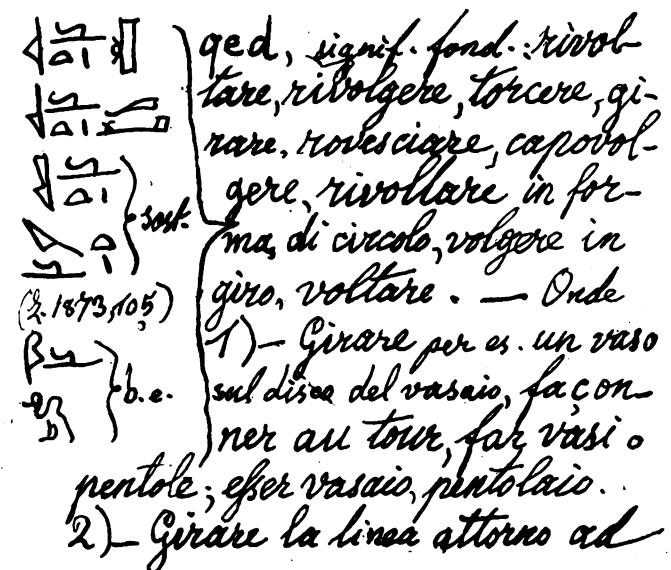 qed, signif. fond.: rivol-
tare, rivolgere, torcere, gi-
rare, rovesciare, capovol-
gere, rivoltare in for-
sost.
ma, di circolo, volgere in
(Z. 1873, 105)
giro, voltare. — Onde
1)— Girare per es. un vaso
b.e.
sul disco del vasaio, façon-
ner au tour, far vasi o
pentole; esser vasaio, pentolaio.
2)— Girare la linea attorno ad